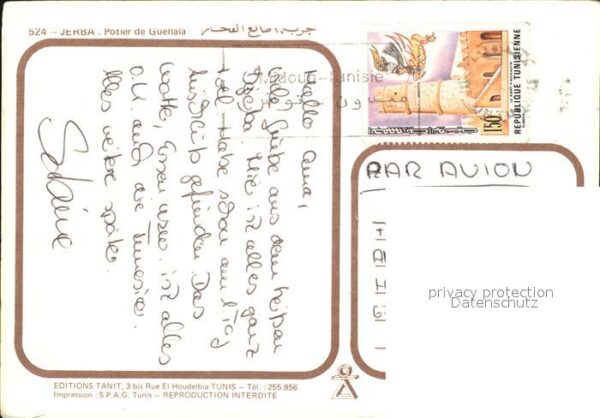 524 - JERBA . Potier de Guellala جربة : صانع الفخار
Midoun-Tunisie
150
REPUBLIQUE TUNISIENNE
PAR AVION
Hallo Oma,
viele Grüße aus dem heißen
Djerba. Hier ist alles ganz
toll. Habe schon am 1. Tag
Anschluß gefunden. Das
Wetter, Essen usw. ist alles
O.K. auch die Tunesier.
Alles weitere später.
Sabine
privacy protection
Datenschutz
EDITIONS TANIT, 3 bis Rue El Houdeibia TUNIS - Tél. : 255.856
Impression : S.P.A.G. Tunis - REPRODUCTION INTERDITE